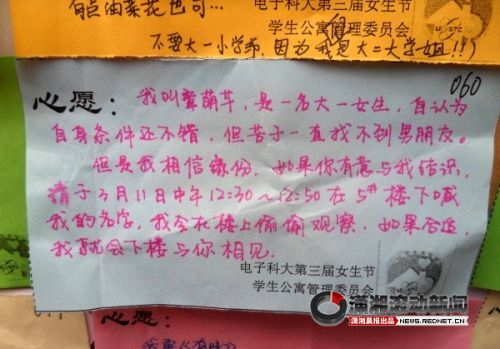 电子科大第三届女生节
学生公寓管理委员会
不要大一小学弟,因为我是大二大学姐!!)
060
心愿:我叫龚萌芊,是一名大一女生,自认为
自身条件还不错,但苦于一直找不到男朋友。
但是我相信缘份,如果你有意与我结识,
请于3月11日中午12:30~12:50在5#楼下喊
我的名字,我会在楼上偷偷观察,如果合适,
我就会下楼与你相见。
电子科大第三届女生节
学生公寓管理委员会
潇湘滚动新闻
潇湘晨报出品
NEWS.REDNET.CN
心愿: